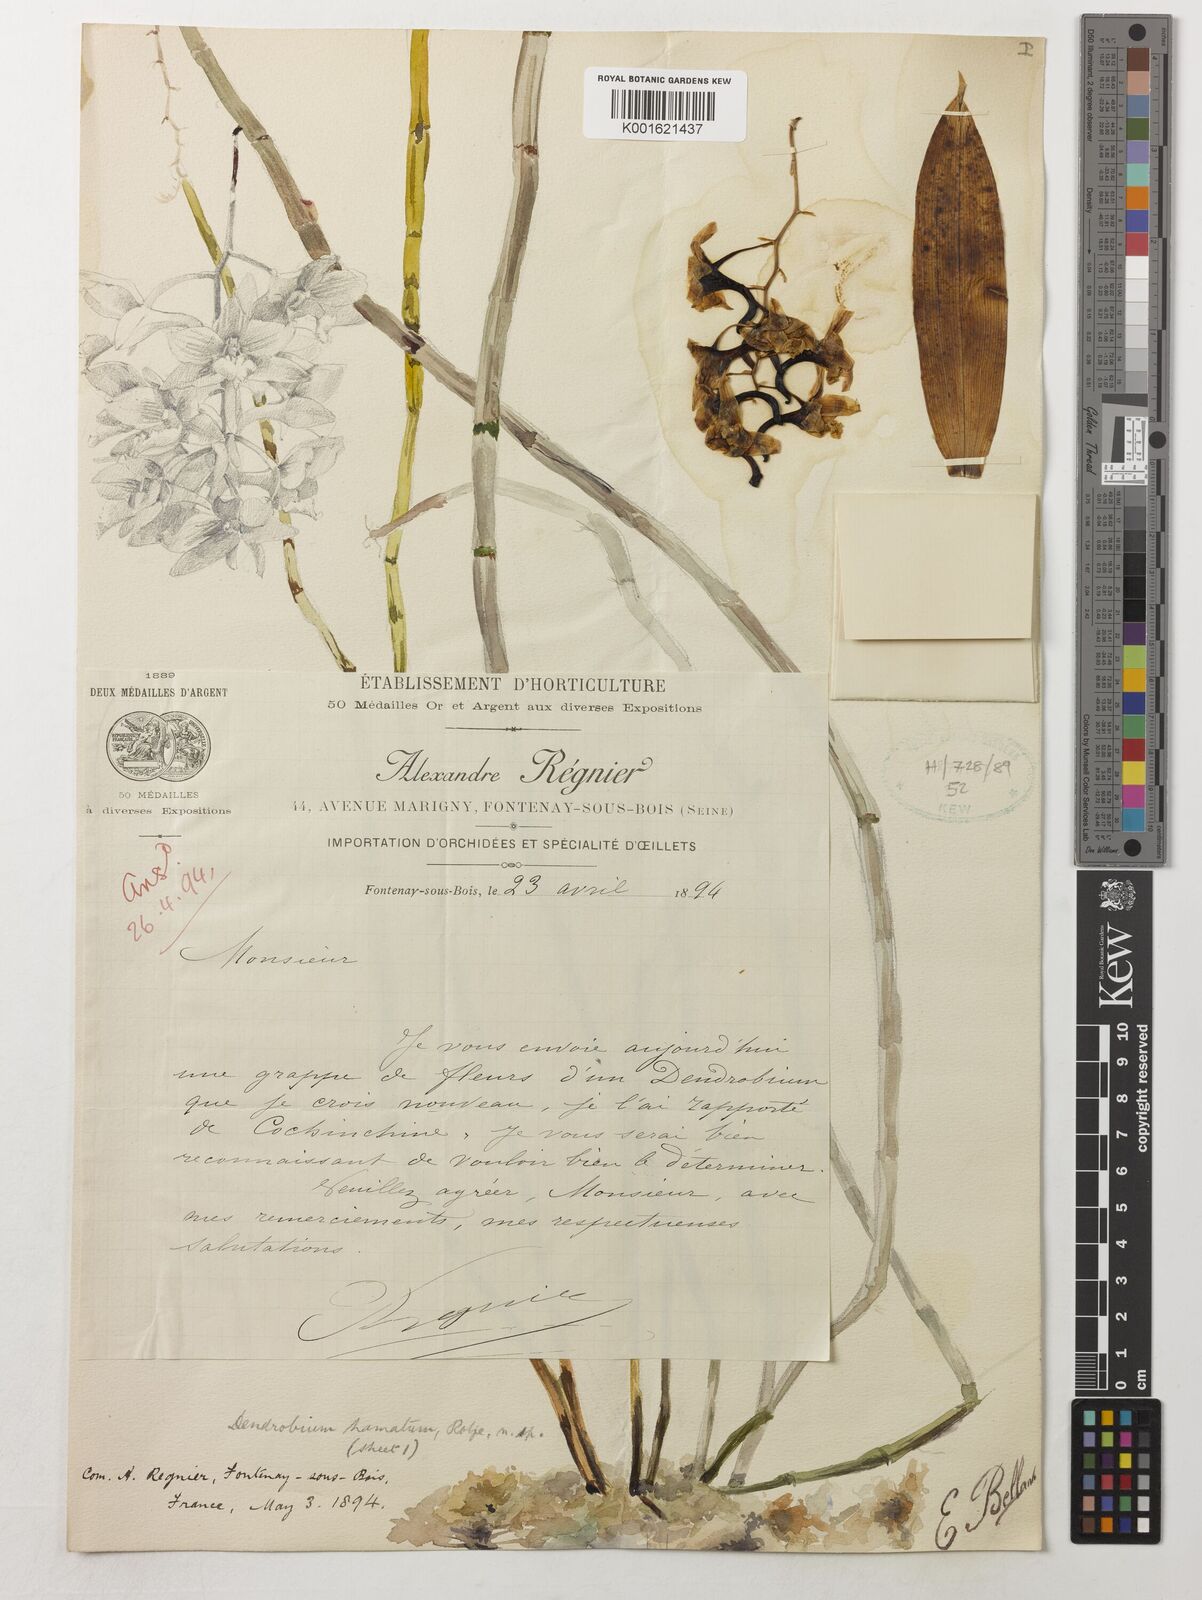 I
ROYAL BOTANIC GARDENS KEW
K001621437
1889
DEUX MÉDAILLES D'ARGENT
50 MÉDAILLES
à diverses Expositions
ÉTABLISSEMENT D'HORTICULTURE
50 Médailles Or et Argent aux diverses Expositions
Alexandre Régnier
44, AVENUE MARIGNY, FONTENAY-SOUS-BOIS (SEINE)
IMPORTATION D'ORCHIDÉES ET SPÉCIALITÉ D'ŒILLETS
Fontenay-sous-Bois, le 23 avril 1894
Ansd.
26.4.94,
Monsieur
Je vous envoie aujourd'hui
une grappe de fleurs d'un Dendrobium
que je crois nouveau, je l'ai rapporté
de Cochinchine, je vous serai bien
reconnaissant de vouloir bien le déterminer.
Veuillez agréer, Monsieur, avec
mes remerciements, mes respectueuses
salutations.
Regnier
H/728/89
52
KEW
Dendrobium hamatum, Rolfe, n. sp.
(sheet 1)
Com. A. Regnier, Fontenay-sous-Bois,
France, May 3. 1894.
Golden Thread
Colors by Munsell Color Services Lab
Don Williams
Royal Botanic Gardens
Kew
copyright reserved
0 1 2 3 4 5 6 7 8 9 10
cm